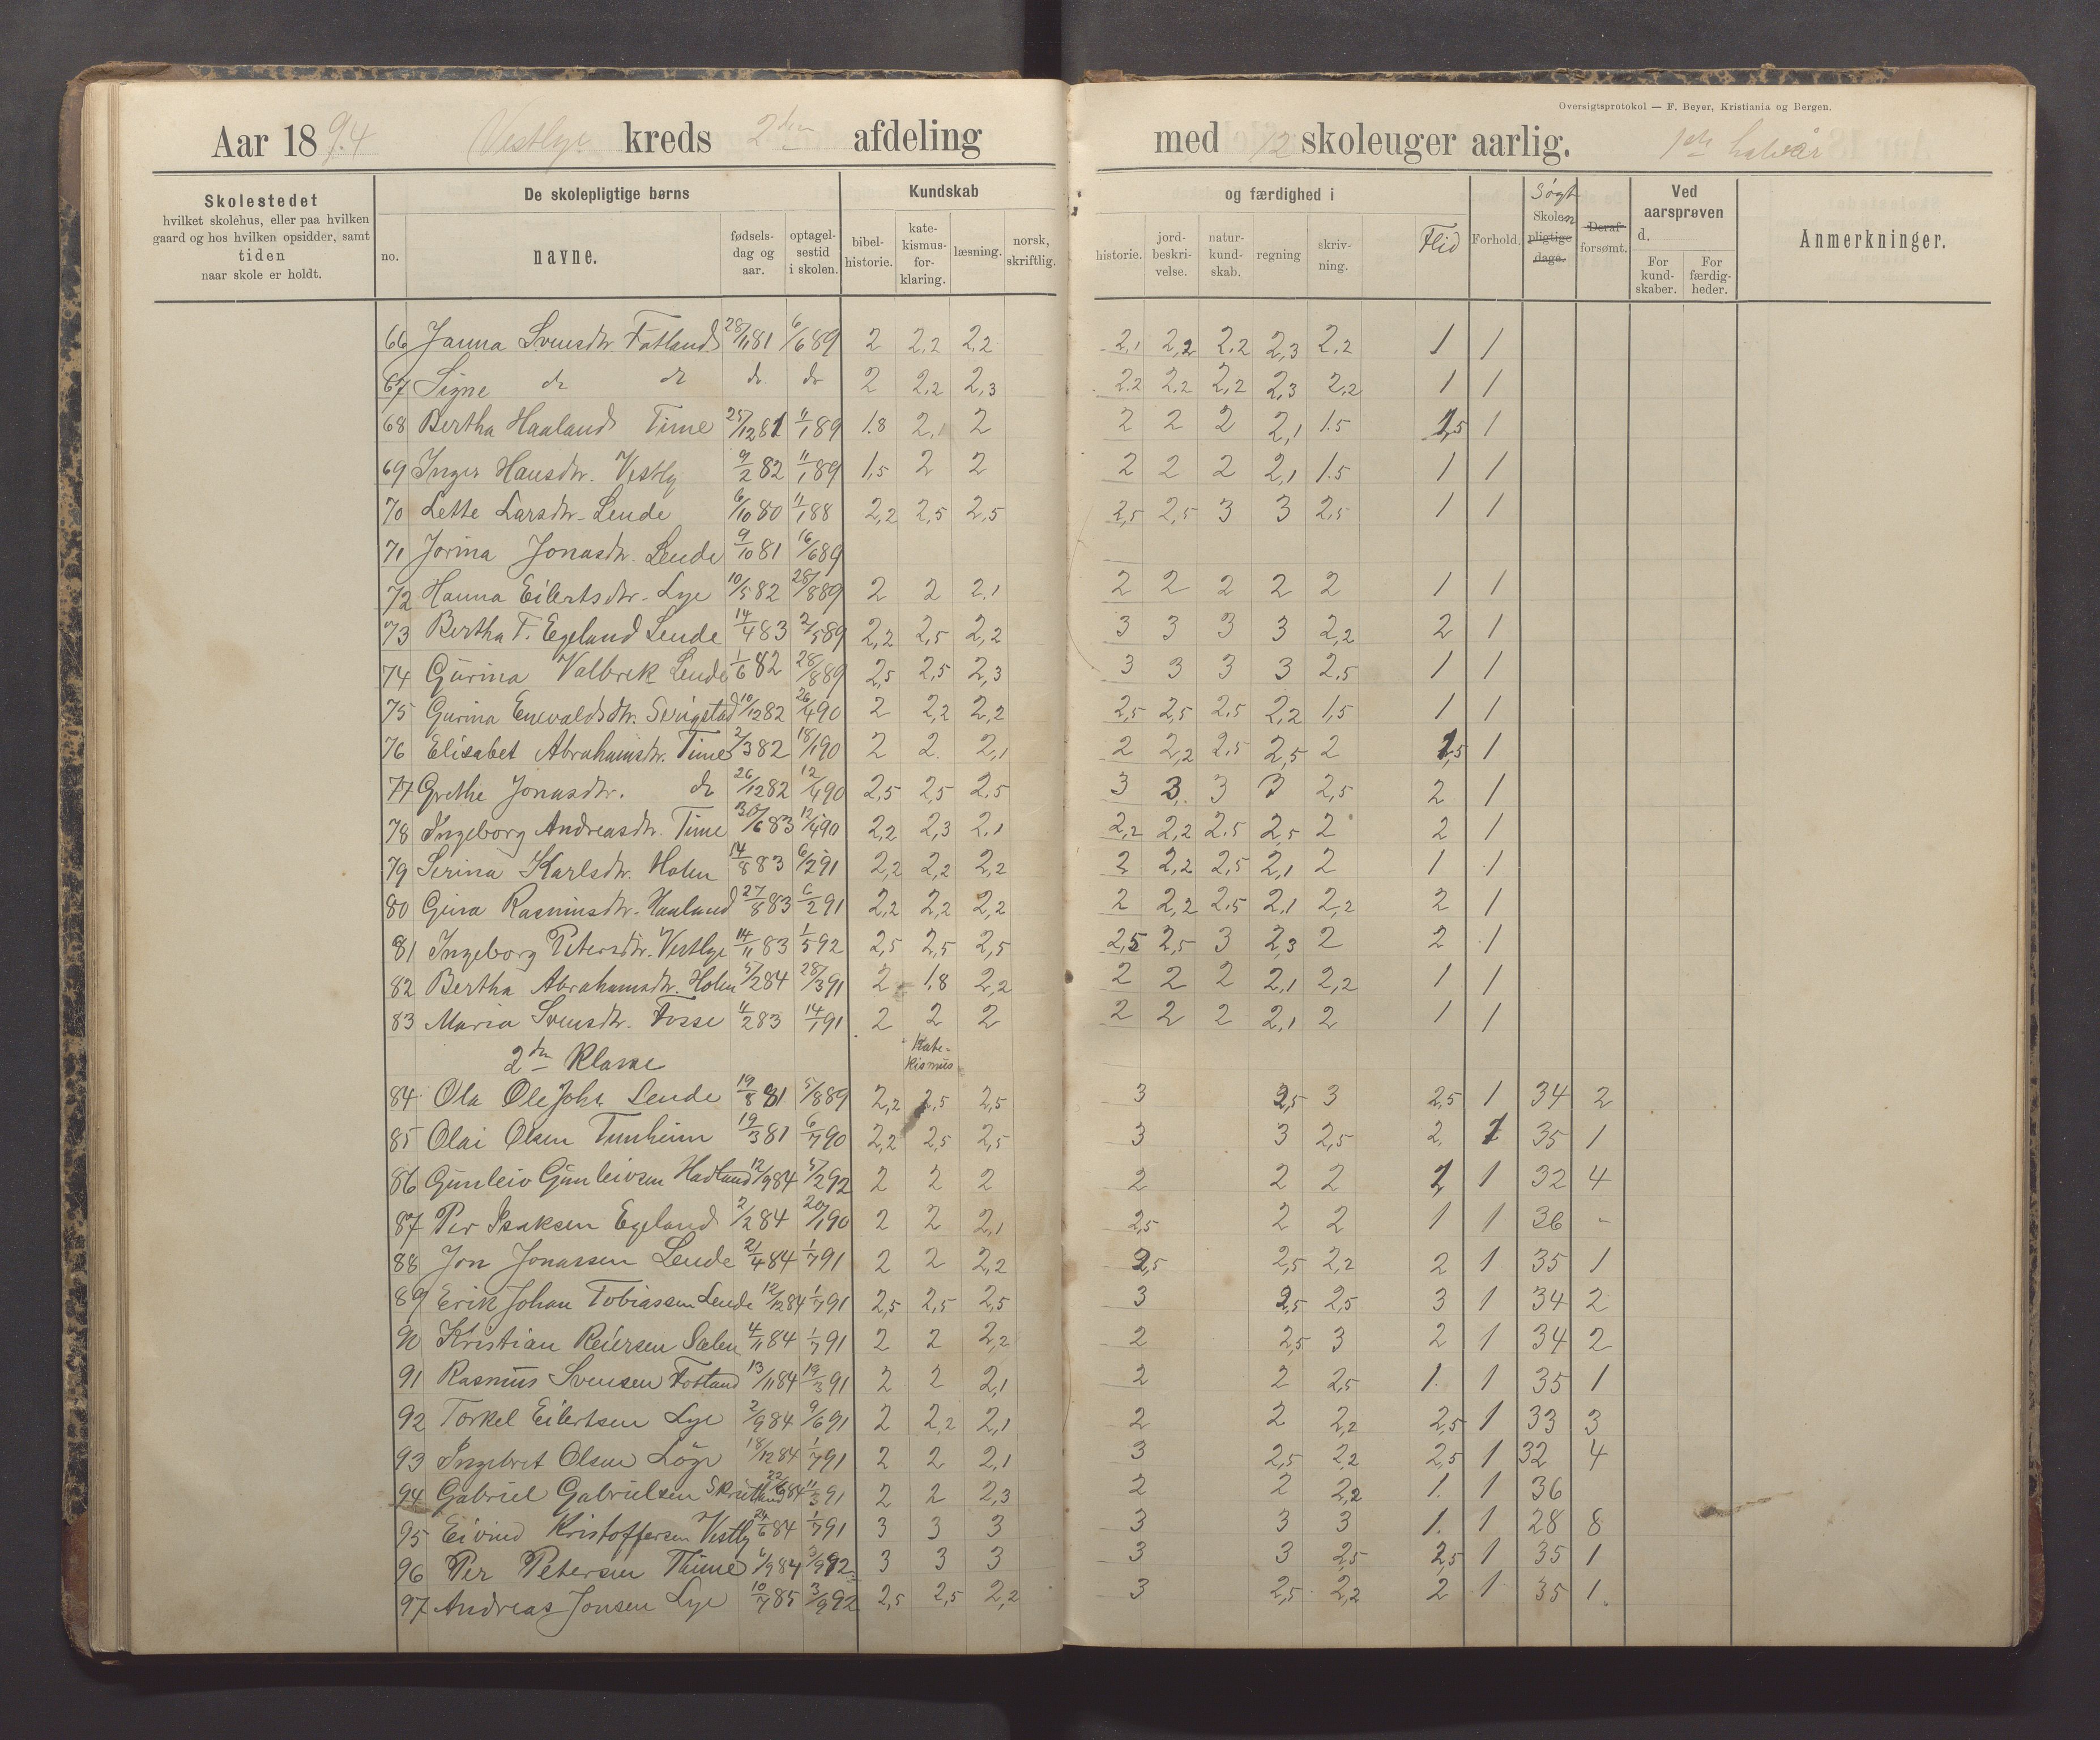 Oversigtsprotokol — F. Beyer, Kristiania og Bergen.
Aar 1894 Vestlye kreds 2den afdeling med 12 skoleuger aarlig. 1ste halvår
Skolestedet hvilket skolehus, eller paa hvilken gaard og hos hvilken opsidder, samt tiden naar skole er holdt.
De skolepligtige børns
no. navne. fødsels-dag og aar. optagel-sestid i skolen.
Kundskab og færdighed i
bibel-historie. kate-kismus-for-klaring. læsning. norsk, skriftlig. historie. jord-beskri-velse. natur-kund-skab. regning skriv-ning. Flid Forhold. Søgt Skolen pligtige dage. Deraf forsømt.
Ved aarsprøven d.
For kund-skaber. For færdig-heder.
Anmerkninger.
66 Janna Svensdtr. Fatland 28/11 81 6/6 89 2 2,2 2,2 2,1 2,2 2,2 2,3 2,2 1 1
67 Signe do do do do 2 2,2 2,3 2,2 2,2 2,2 2,3 2,2 1 1
68 Bertha Haaland Time 25/12 81 11/1 89 1.8 2,1 2 2 2 2 2,1 1.5 1,5 1
69 Inger Hansdtr. Vestly 9/2 82 11/1 89 1,5 2 2 2 2 2 2,1 1.5 1 1
70 Lette Larsdtr. Lende 6/10 80 11/1 88 2,2 2,5 2,5 2,5 2,5 3 3 2,5 1 1
71 Jorina Jonasdtr. Lende 9/10 81 16/6 89
72 Hanna Eilertsdtr. Lye 10/5 82 28/8 89 2 2 2.1 2 2 2 2 2 1 1
73 Bertha T. Egeland Lende 14/4 83 2/5 89 2,2 2,5 2,2 3 3 3 3 2,2 2 1
74 Gurina Valbrek Lende 1/6 82 28/8 89 2,5 2,5 2,3 3 3 3 3 2.5 1 1
75 Gurina Enevaldsdtr. Serigstad 10/12 82 26/4 90 2 2,2 2,2 2,5 2,5 2,5 2,2 1,5 1 1
76 Elisabet Abrahamsdtr. Time 2/3 82 18/1 90 2 2 2,1 2 2,2 2,5 2,5 2 1,5 1
77 Grethe Jonasdtr. do 26/12 82 12/4 90 2,5 2,5 2.5 3 3 3 3 2,5 2 1
78 Ingeborg Andreasdtr. Time 30/6 83 12/4 90 2,2 2,3 2.1 2,2 2,2 2.5 2,5 2 2 1
79 Serina Karlsdtr. Holen 14/8 83 6/2 91 2,2 2,2 2,2 2 2,2 2,5 2,1 2 1 1
80 Gina Rasmusdtr. Haaland 27/8 83 6/2 91 2,2 2,2 2,2 2 2,2 2.5 2,1 2,2 2 1
81 Ingeborg Petersdtr. Vestlye 14/11 83 1/5 92 2,5 2,5 2,5 2,5 2,5 3 2,3 2 2 1
82 Bertha Abrahamsdtr. Holen 5/2 84 28/3 91 2 1.8 2,2 2 2 2 2,1 2,2 1 1
83 Maria Svensdtr. Fosse 11/2 83 14/1 91 2 2 2 2 2 2 2,1 2 1 1
2den Klasse Kate-kismus
84 Ola OleJoh. Lende 19/8 81 5/8 89 2,2 2,5 2,5 3 2,5 3 2,5 1 34 2
85 Olai Olsen Tunheim 19/3 81 6/7 90 2,2 2,5 2,5 3 3 2,5 2 1 35 1
86 Gunleiv Gunleivsen Hadland 12/9 84 5/2 92 2 2 2 2 2 2 1 1 32 4
87 Per Isaksen Egeland 2/2 84 20/1 90 2 2 2,1 2,5 2 2 1 1 36 -
88 Jon Jonassen Lende 21/4 84 1/7 91 2 2 2,2 2,5 2,5 2,2 2 1 35 1
89 Erik Johan Tobiassen Lende 12/12 84 1/7 91 2,5 2,5 2,5 3 2,5 2,5 3 1 34 2
90 Kristian Reiersen Sælen 4/11 84 1/7 91 2 2 2,2 2 2,5 3 2 1 34 2
91 Rasmus Svensen Fotland 13/11 84 19/3 91 2 2 2,1 2 2 2,5 1. 1 35 1
92 Torkel Eilertsen Lye 2/9 84 9/6 91 2 2,2 2,1 2 2 2,2 2,5 1 33 3
93 Ingebret Olsen Løge 18/12 84 1/7 91 2 2 2,1 3 2,5 2,2 2,5 1 32 4
94 Gabriel Gabrielsen Skrutland 22/6 84 11/3 91 2 2 2,3 2 2 2,2 1. 1 36
95 Eivind Kristoffersen Vestly 24/6 84 1/7 91 3 3 3 3 3 3 1. 1 28 8
96 Per Petersen Thime 6/9 84 3/9 92 3 3 3 3 3 2,5 2,5 1 35 1
97 Andreas Jonsen Lye 10/7 85 3/9 92 2,5 2,5 2,2 3 2,5 2,2 2 1 35 1.